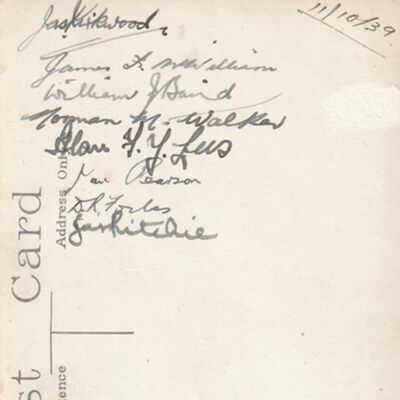 Jas Kirkwood
11/10/39
James F. McWilliam
William J Baird
Norman M. Walker
Alan F. Y. Lees
Ian Pearson
D. R. Forbes
Jas Ritchie
st Card
Address Onl
ence